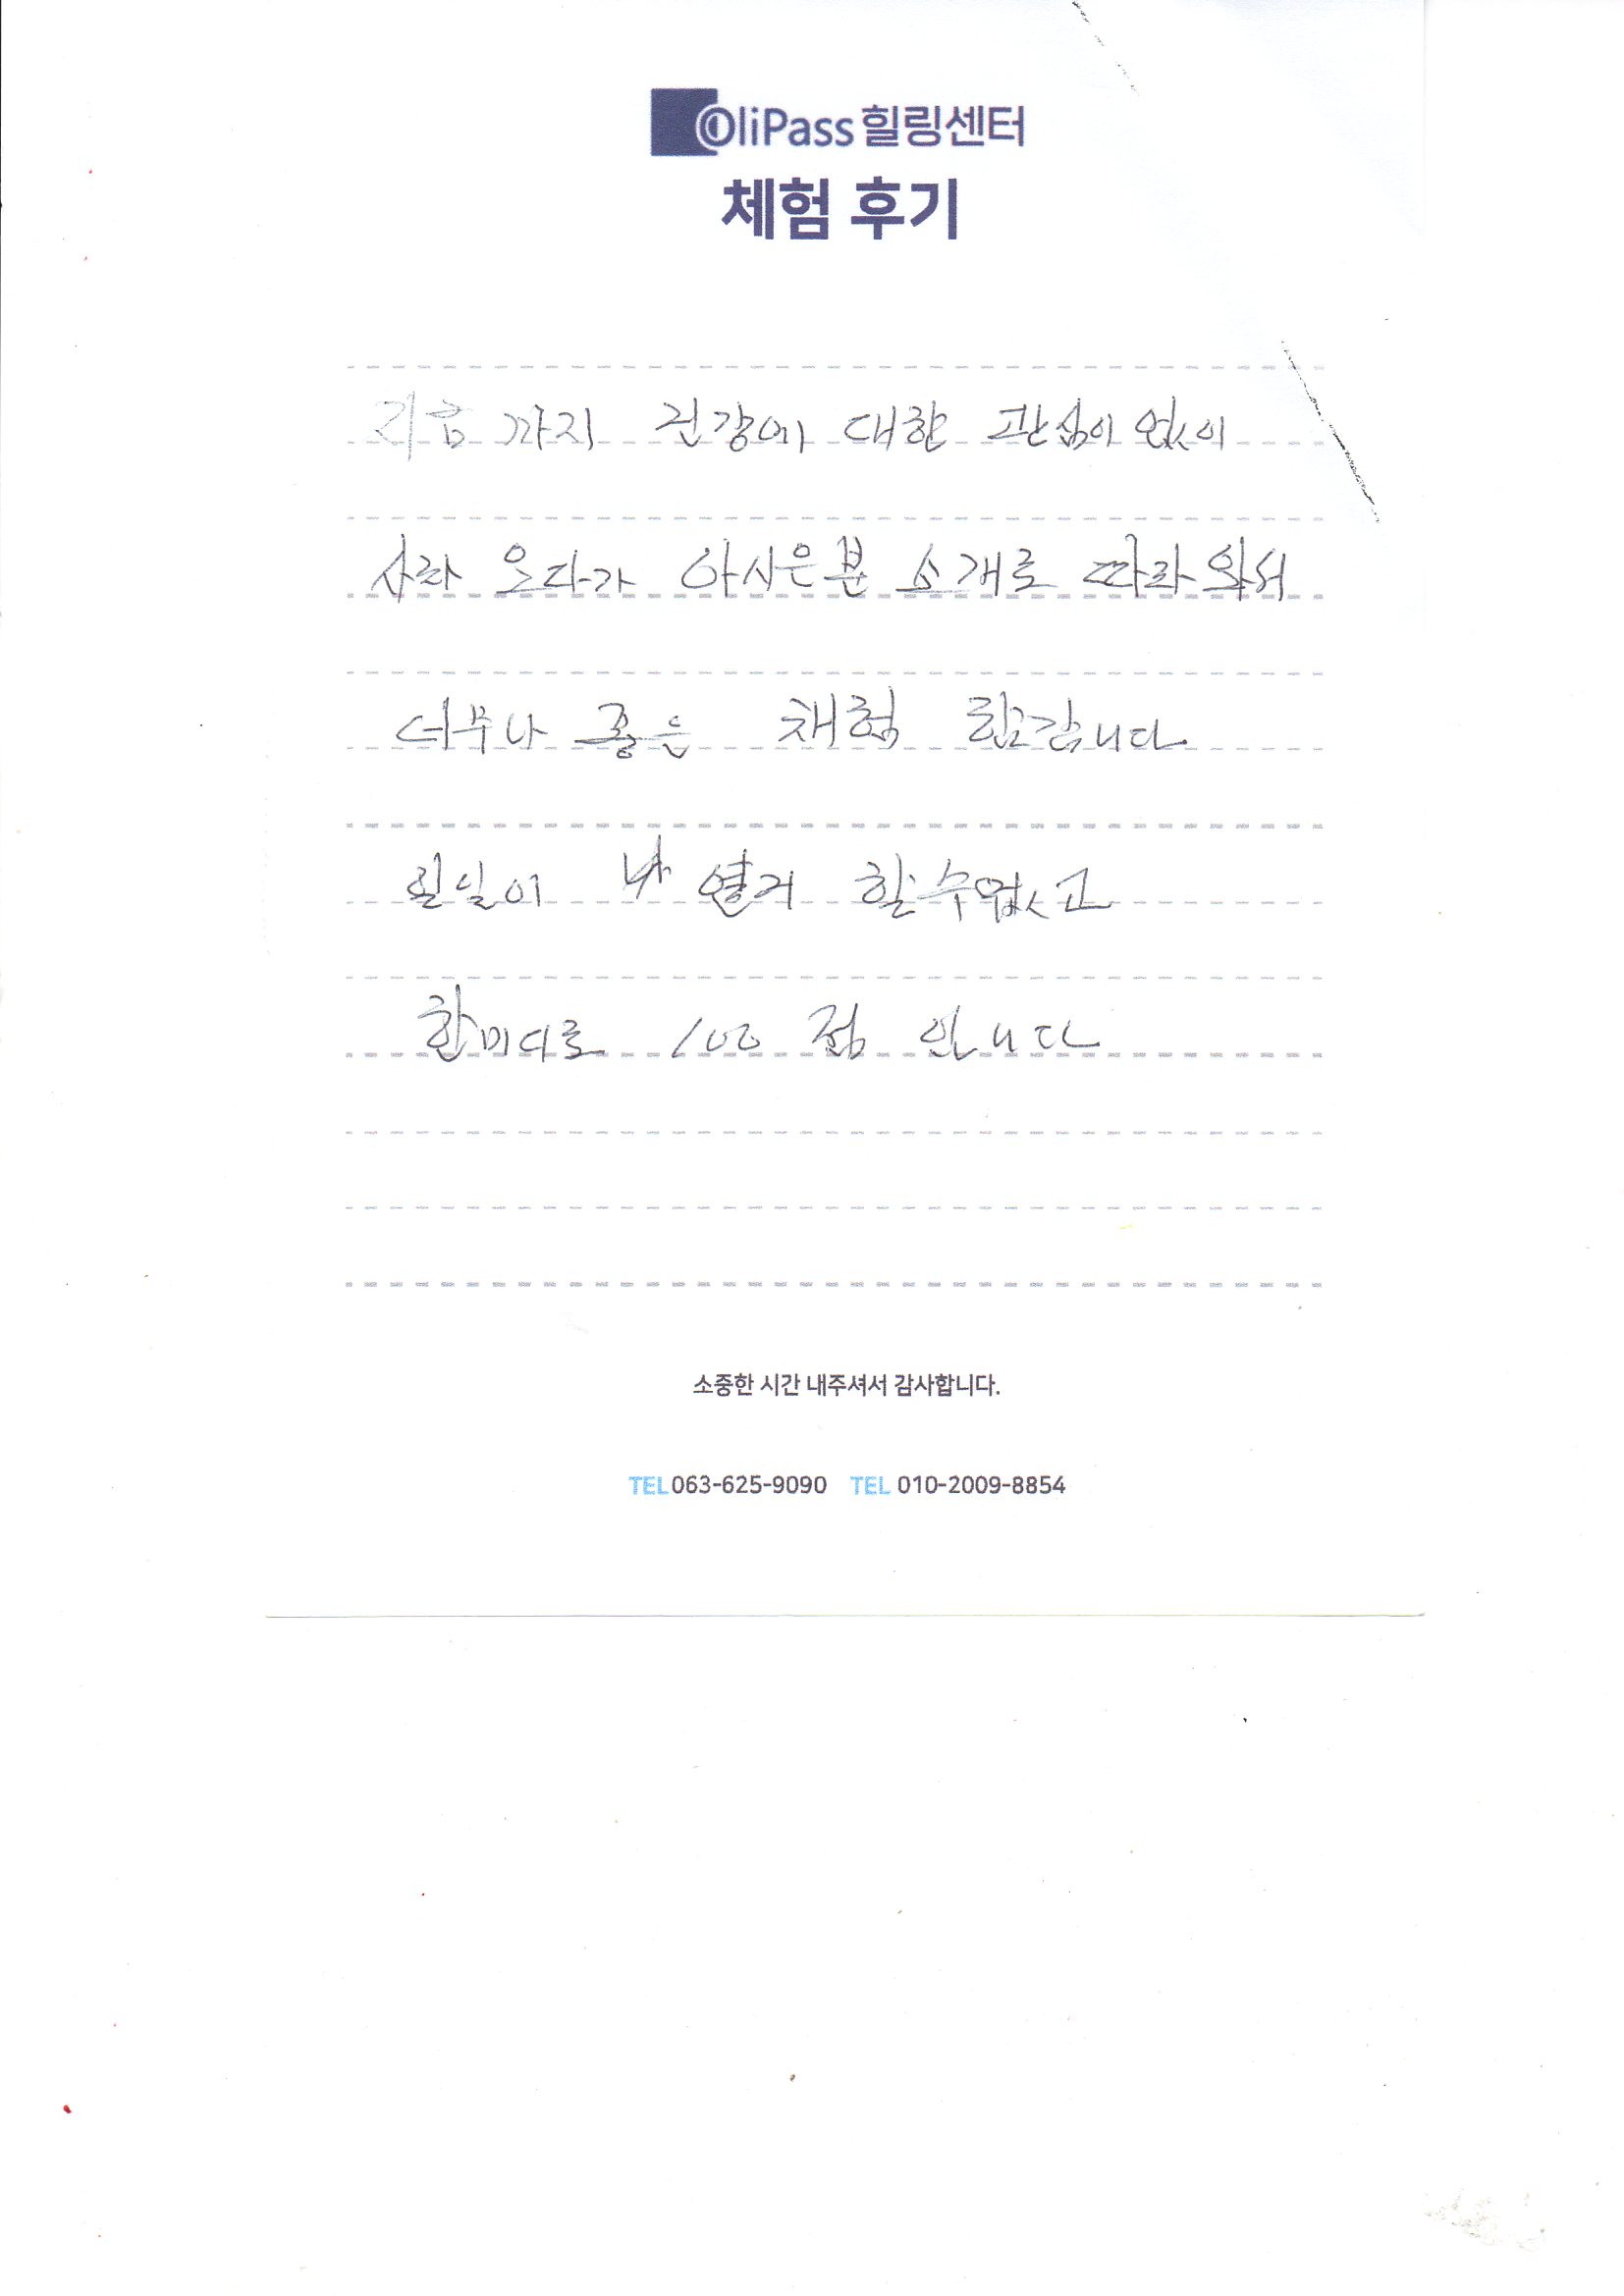 OliPass 힐링센터
체험 후기
지금 까지 건강에 대한 관심이 없이
사라 오다가 아시은분 소개로 따라 와서
너무나 좋은 채험 하고 감니다
일일이 다 열거 할수없고
한미디로 100 점 입니다
소중한 시간 내주셔서 감사합니다.
TEL 063-625-9090 TEL 010-2009-8854